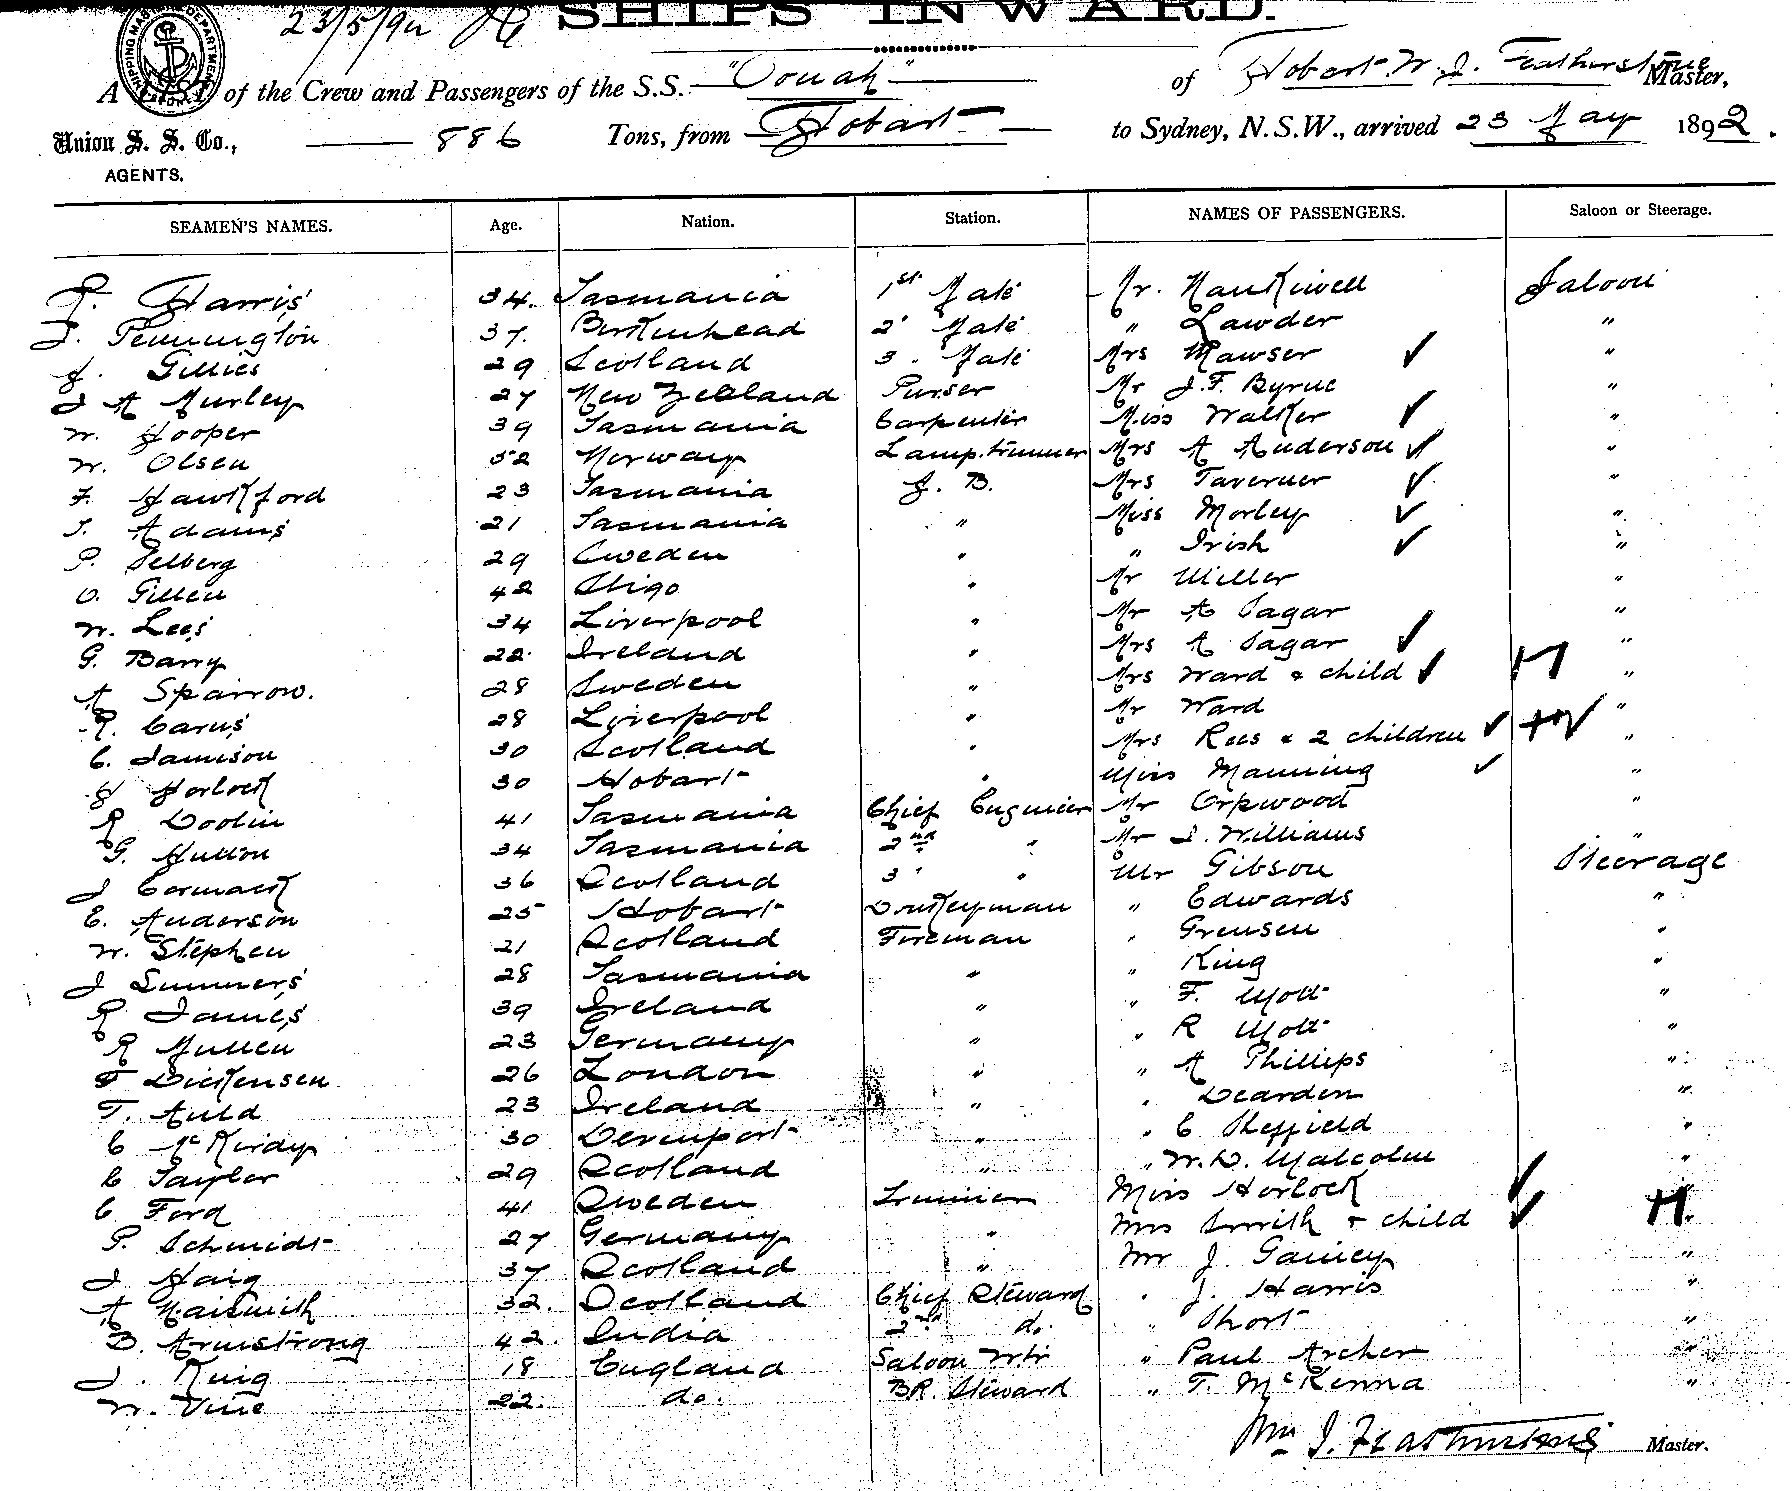 23/5/92
SHIPS INWARD.
A LIST of the Crew and Passengers of the S.S. "Oonah" of Hobart W. J. Featherstone Master,
Union S. S. Co., 886 Tons, from Hobart to Sydney, N.S.W., arrived 23 May 1892.
AGENTS.
SEAMEN'S NAMES. Age. Nation. Station. NAMES OF PASSENGERS. Saloon or Steerage.
Harris 34. Tasmania 1st Mate Mr. Saloon
Pennington 37. Birkenhead 2 Mate " Lawder "
J. Gillies 29 Scotland 3. Mate Mrs Mawser "
J A Murley 27 New Zealand Purser Mr J. F. Byrne "
W. Hooper 39 Tasmania Carpenter Miss Walker "
W. Olsen 52 Norway Lamptrimmer Mrs A Anderson "
F. Hawkford 23 Tasmania A. B. Mrs Taverner "
T. Adams 21 Tasmania " Miss Morley "
P. Selberg 29 Sweden " " Irish "
O. Gillen 42 Sligo " Mr Miller "
W. Lees 34 Liverpool " Mr A Sagar "
G. Barry 22 Ireland " Mrs A Sagar "
A Sparrow. 28 Sweden " Mrs Ward & child H "
R. Carus 28 Liverpool " Mr Ward "
C. Jamison 30 Scotland " Mrs Rees & 2 children "
H Horlock 30 Hobart " Miss Manning "
R Doolin 41 Tasmania Chief Engineer Mr Orpwood "
G. Hutton 34 Tasmania 2nd " Mr J. Williams "
J Cormack 36 Scotland 3 " Mr Gibson Steerage
E. Anderson 25 Hobart Donkeyman " Edwards "
W. Stephen 21 Scotland Fireman " Grensen "
J Summers 28 Tasmania " " King "
R James 39 Ireland " " F. Mott "
R Mullen 23 Germany " " R Mott "
F Dickensen 26 London " " A Phillips "
T. Auld 23 Ireland " " Dearden "
C McKirdy 30 Devenport " " C Sheffield "
C Taylor 29 Scotland " " W. D. Malcolm "
C Ford 41 Sweden Trimmer Miss Horlock "
P. Schmidt 27 Germany " Mrs Smith & child H "
J Haig 37 Scotland " Mr J. Gainey "
A Naismith 32. Scotland Chief Steward " J. Harris "
B. Armstrong 42. India 2nd do. " Short "
J. King 18 England Saloon Wtr " Paul Archer "
W. Vine 22. do. BR. Steward " T. McKenna "
Wm J. Featherstone Master.